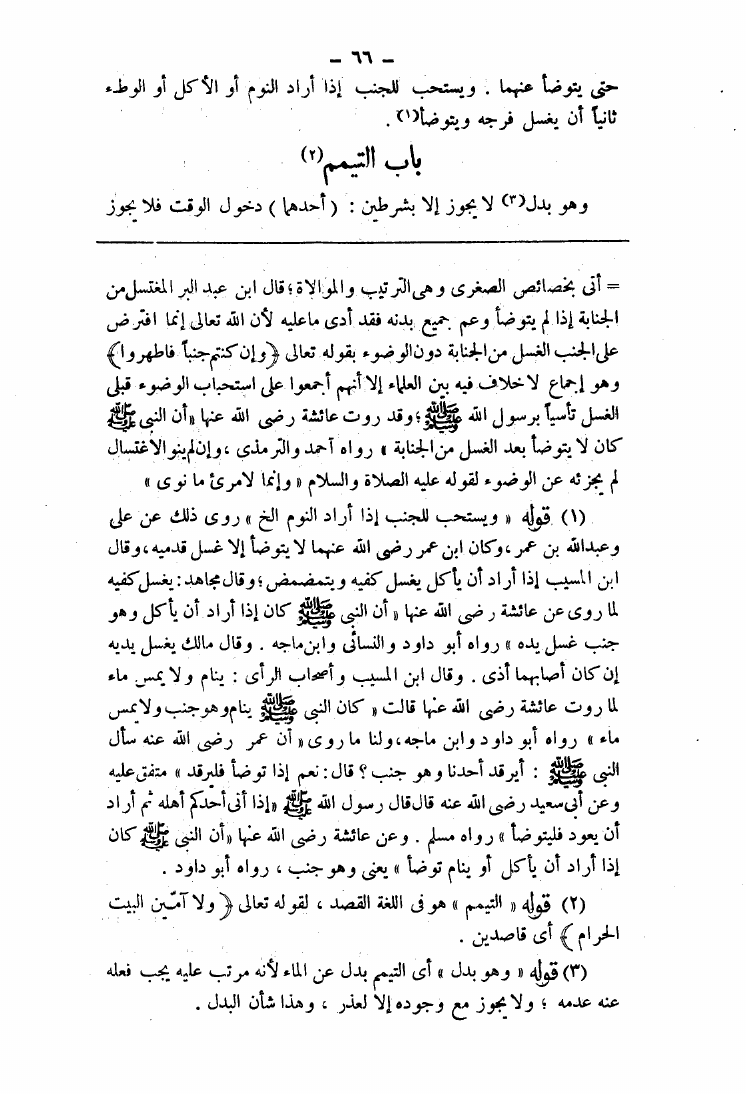 – ٦٦ –
حتى يتوضأ عنهما . ويستحب للجنب إذا أراد النوم أو الأكل أو الوطء
ثانياً أن يغسل فرجه ويتوضأ(١) .
باب التيمم(٢)
وهو بدل(٣) لا يجوز إلا بشرطين : ( أحدهما ) دخول الوقت فلا يجوز
= أتى بخصائص الصغرى وهى الترتيب والموالاة ؛ قال ابن عبد البر المغتسل من
الجنابة إذا لم يتوضأ وعم جميع بدنه فقد أدى ما عليه لأن الله تعالى إنما افترض
على الجنب الغسل من الجنابة دون الوضوء بقوله تعالى ﴿ وإن كنتم جنباً فاطهروا ﴾
وهو إجماع لا خلاف فيه بين العلماء إلا أنهم أجمعوا على استحباب الوضوء قبل
الغسل تأسياً برسول الله ﷺ ؛ وقد روت عائشة رضى الله عنها « أن النبى ﷺ
كان لا يتوضأ بعد الغسل من الجنابة » رواه أحمد والترمذى ، وإن لم ينو الاغتسال
لم يجزئه عن الوضوء لقوله عليه الصلاة والسلام « وإنما لامرئ ما نوى »
(١) قوله « ويستحب للجنب إذا أراد النوم الخ » روى ذلك عن على
وعبدالله بن عمر ، وكان ابن عمر رضى الله عنهما لا يتوضأ إلا غسل قدميه ، وقال
ابن المسيب إذا أراد أن يأكل يغسل كفيه ويتمضمض ؛ وقال مجاهد : يغسل كفيه
لما روى عن عائشة رضى الله عنها « أن النبى ﷺ كان إذا أراد أن يأكل وهو
جنب غسل يده » رواه أبو داود والنسائى وابن ماجه . وقال مالك يغسل يديه
إن كان أصابهما أذى . وقال ابن المسيب وأصحاب الرأى : ينام ولا يمس ماء
لما روت عائشة رضى الله عنها قالت « كان النبى ﷺ ينام وهو جنب ولا يمس
ماء » رواه أبو داود وابن ماجه ، ولنا ما روى « أن عمر رضى الله عنه سأل
النبى ﷺ : أيرقد أحدنا وهو جنب ؟ قال : نعم إذا توضأ فليرقد » متفق عليه
وعن أبى سعيد رضى الله عنه قال قال رسول الله ﷺ « إذا أتى أحدكم أهله ثم أراد
أن يعود فليتوضأ » رواه مسلم . وعن عائشة رضى الله عنها « أن النبى ﷺ كان
إذا أراد أن يأكل أو ينام توضأ » يعنى وهو جنب ، رواه أبو داود .
(٢) قوله « التيمم » هو فى اللغة القصد ، لقوله تعالى ﴿ ولا آمّين البيت
الحرام ﴾ أى قاصدين .
(٣) قوله « وهو بدل » أى التيمم بدل عن الماء لأنه مرتب عليه يجب فعله
عنه عدمه ؛ ولا يجوز مع وجوده إلا لعذر ، وهذا شأن البدل .